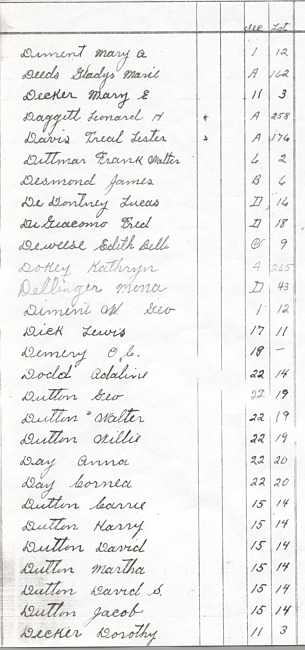 Sec Lot
Diment Mary A 1 12
Deeds Gladys Marie A 162
Decker Mary E 11 3
Daggett Leonard H * A 258
Davis Treal Lester * A 176
Dittmar Frank Walter 6 2
Desmond James B 6
De Dontney Lucas D 16
DiGiacomo Fred D 18
Deweese Edith Bell 9
Dokey Kathryn A 265
Dellinger Mona D 43
Diment W Geo 1 12
Dick Lewis 17 11
Demery O.C. 18 —
Dodd Adaline 22 14
Dutton Geo 22 19
Dutton Walter 22 19
Dutton Willie 22 19
Day Anna 22 20
Day Cornea 22 20
Dutton Carrie 15 14
Dutton Harry 15 14
Dutton David 15 14
Dutton Martha 15 14
Dutton David S. 15 14
Dutton Jacob 15 14
Decker Dorothy 11 3